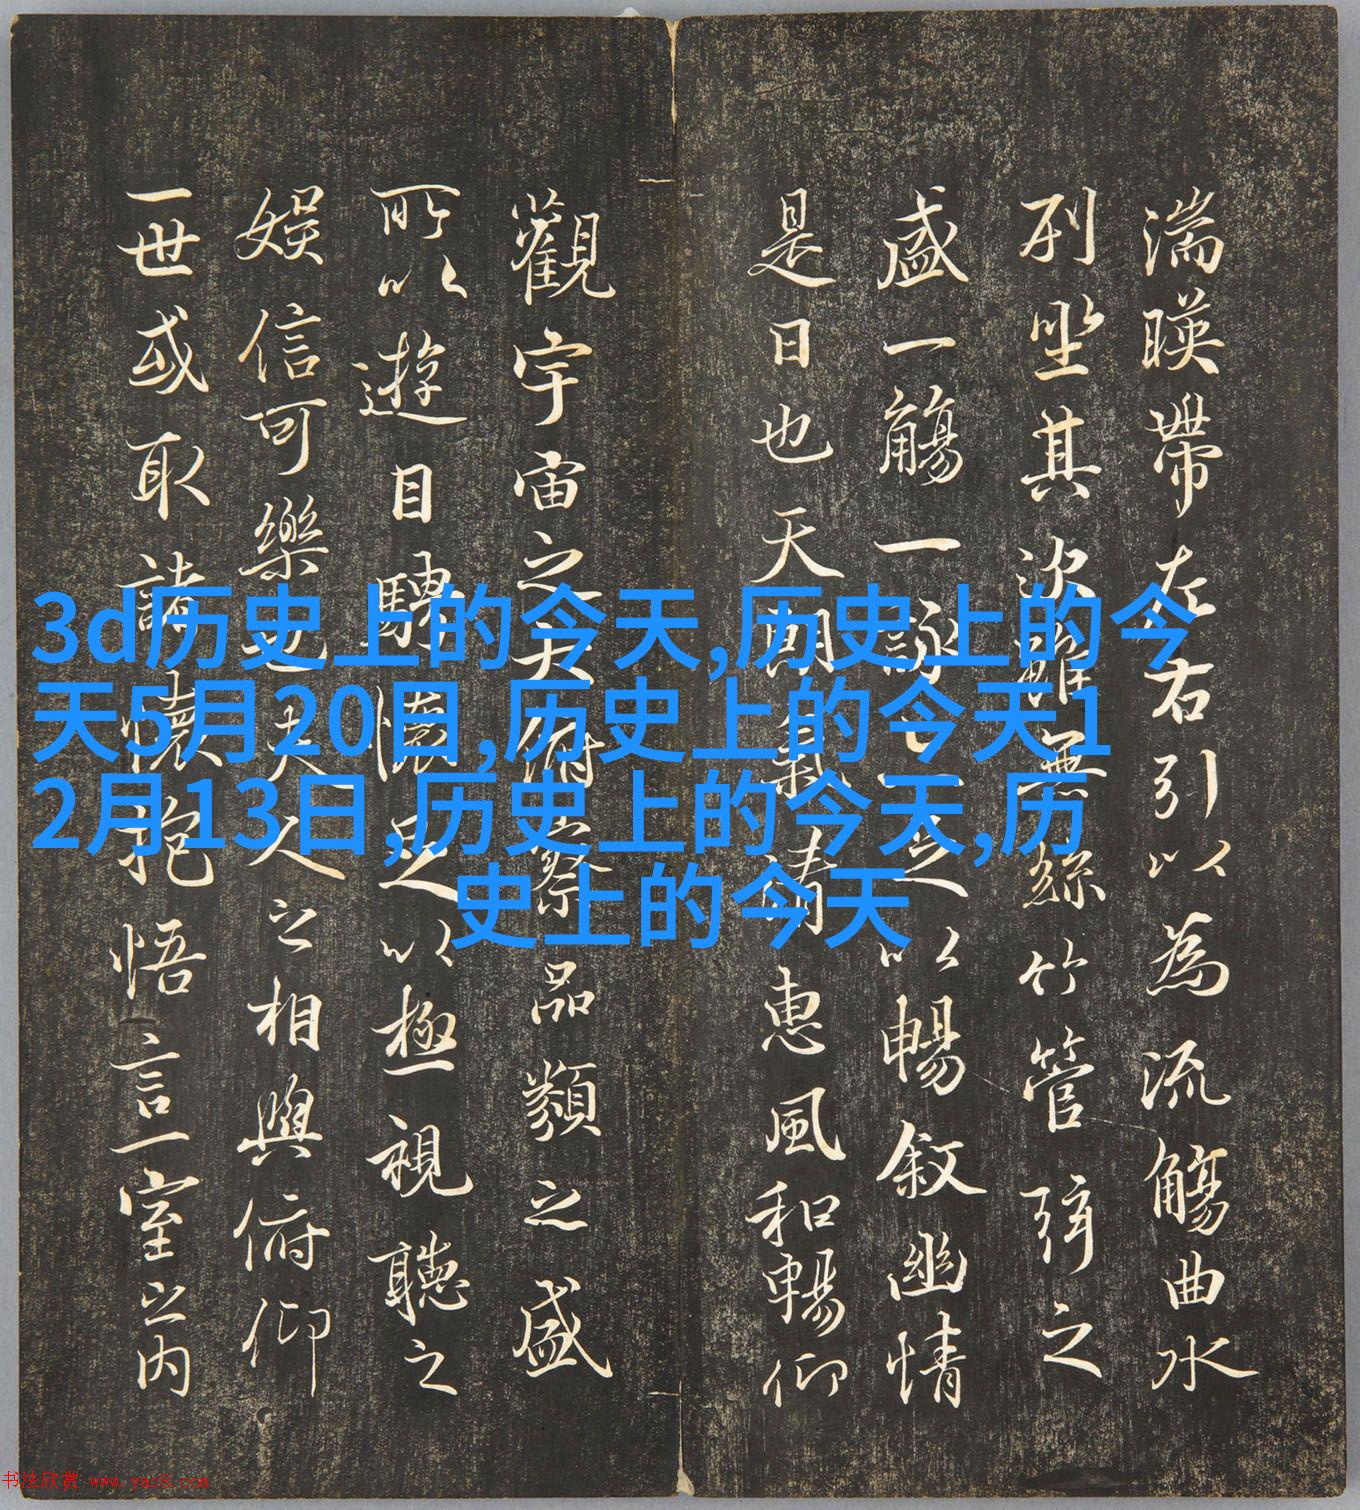 湍暎帶左右引以為流觴曲水
列坐其次雖無絲竹管弦之
盛一觴一詠亦足以暢敘幽情
是日也天朗氣清惠風和暢仰
觀宇宙之大俯察品類之盛
所以遊目騁懷足以極視聽之
娛信可樂也夫人之相與俯仰
一世或取諸懷抱悟言一室之内
3d历史上的今天,历史上的今
天5月20日,历史上的今天1
2月13日,历史上的今天,历
史上的今天
书法欣赏 www.yac8.com